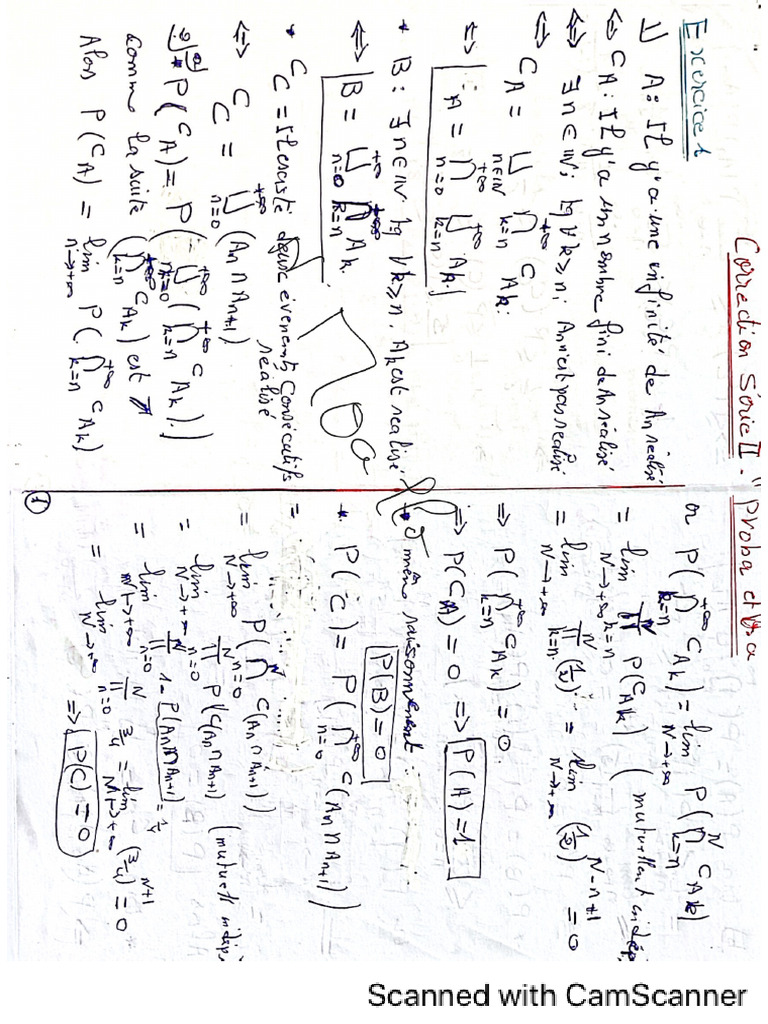 Correction Série II. "Proba et V.a
Exercice 1
1) A: Il y'a une infinité de An réalisé
⇔ C_A : Il y'a un nombre fini de An réalisé
⇔ ∃n∈ℕ; tq ∀k≥n; An n'est pas réalisé
⇔ C_A = ⋃_{n∈ℕ} ⋂_{k=n}^{+∞} C_{Ak}.
⇔ A = ⋂_{n=0}^{+∞} ⋃_{k=n}^{+∞} Ak.
* B: ∃n∈ℕ tq ∀k≥n. Ak est réalisé
⇔ B = ⋃_{n=0}^{+∞} ⋂_{k=n}^{+∞} Ak.
* C = Il existe deux événements consécutifs réalisé
⇔ C = ⋃_{n=0}^{+∞} (An ∩ An+1)
2) a) * P(C_A) = P(⋃_{n=0}^{+∞} (⋂_{k=n}^{+∞} C_{Ak}).)
Comme la suite (⋂_{k=n}^{+∞} C_{Ak}) est ↗
Alors P(C_A) = lim_{n→+∞} P(⋂_{k=n}^{+∞} C_{Ak})
or P(⋂_{k=n}^{+∞} C_{Ak}) = lim_{N→+∞} P(⋂_{k=n}^{N} C_{Ak})
= lim_{N→+∞} ∏_{k=n}^{N} P(C_{Ak}) (mutuellmt indép
= lim_{N→+∞} ∏_{k=n}^{N} (1/2) = lim_{N→+∞} (1/2)^{N-n+1} = 0
⇒ P(⋂_{k=n}^{+∞} C_{Ak}) = 0
⇒ P(C_A) = 0 ⇒ P(A) = 1
* même raisonnement:
P(B) = 0
* P(C) = P(⋂_{n=0}^{+∞} C(An ∩ An+1))
= lim_{N→+∞} P(⋂_{n=0}^{N} C(An ∩ An+1))
= lim_{N→+∞} ∏_{n=0}^{N} P(C(An ∩ An+1)) (mutuell indép
= lim_{N→+∞} ∏_{n=0}^{N} 1 - P(An ∩ An+1) = 1/4
= lim_{N→+∞} ∏_{n=0}^{N} 3/4 = lim_{N→+∞} (3/4)^{N+1} = 0
⇒ P(C) = 0
1
Scanned with CamScanner